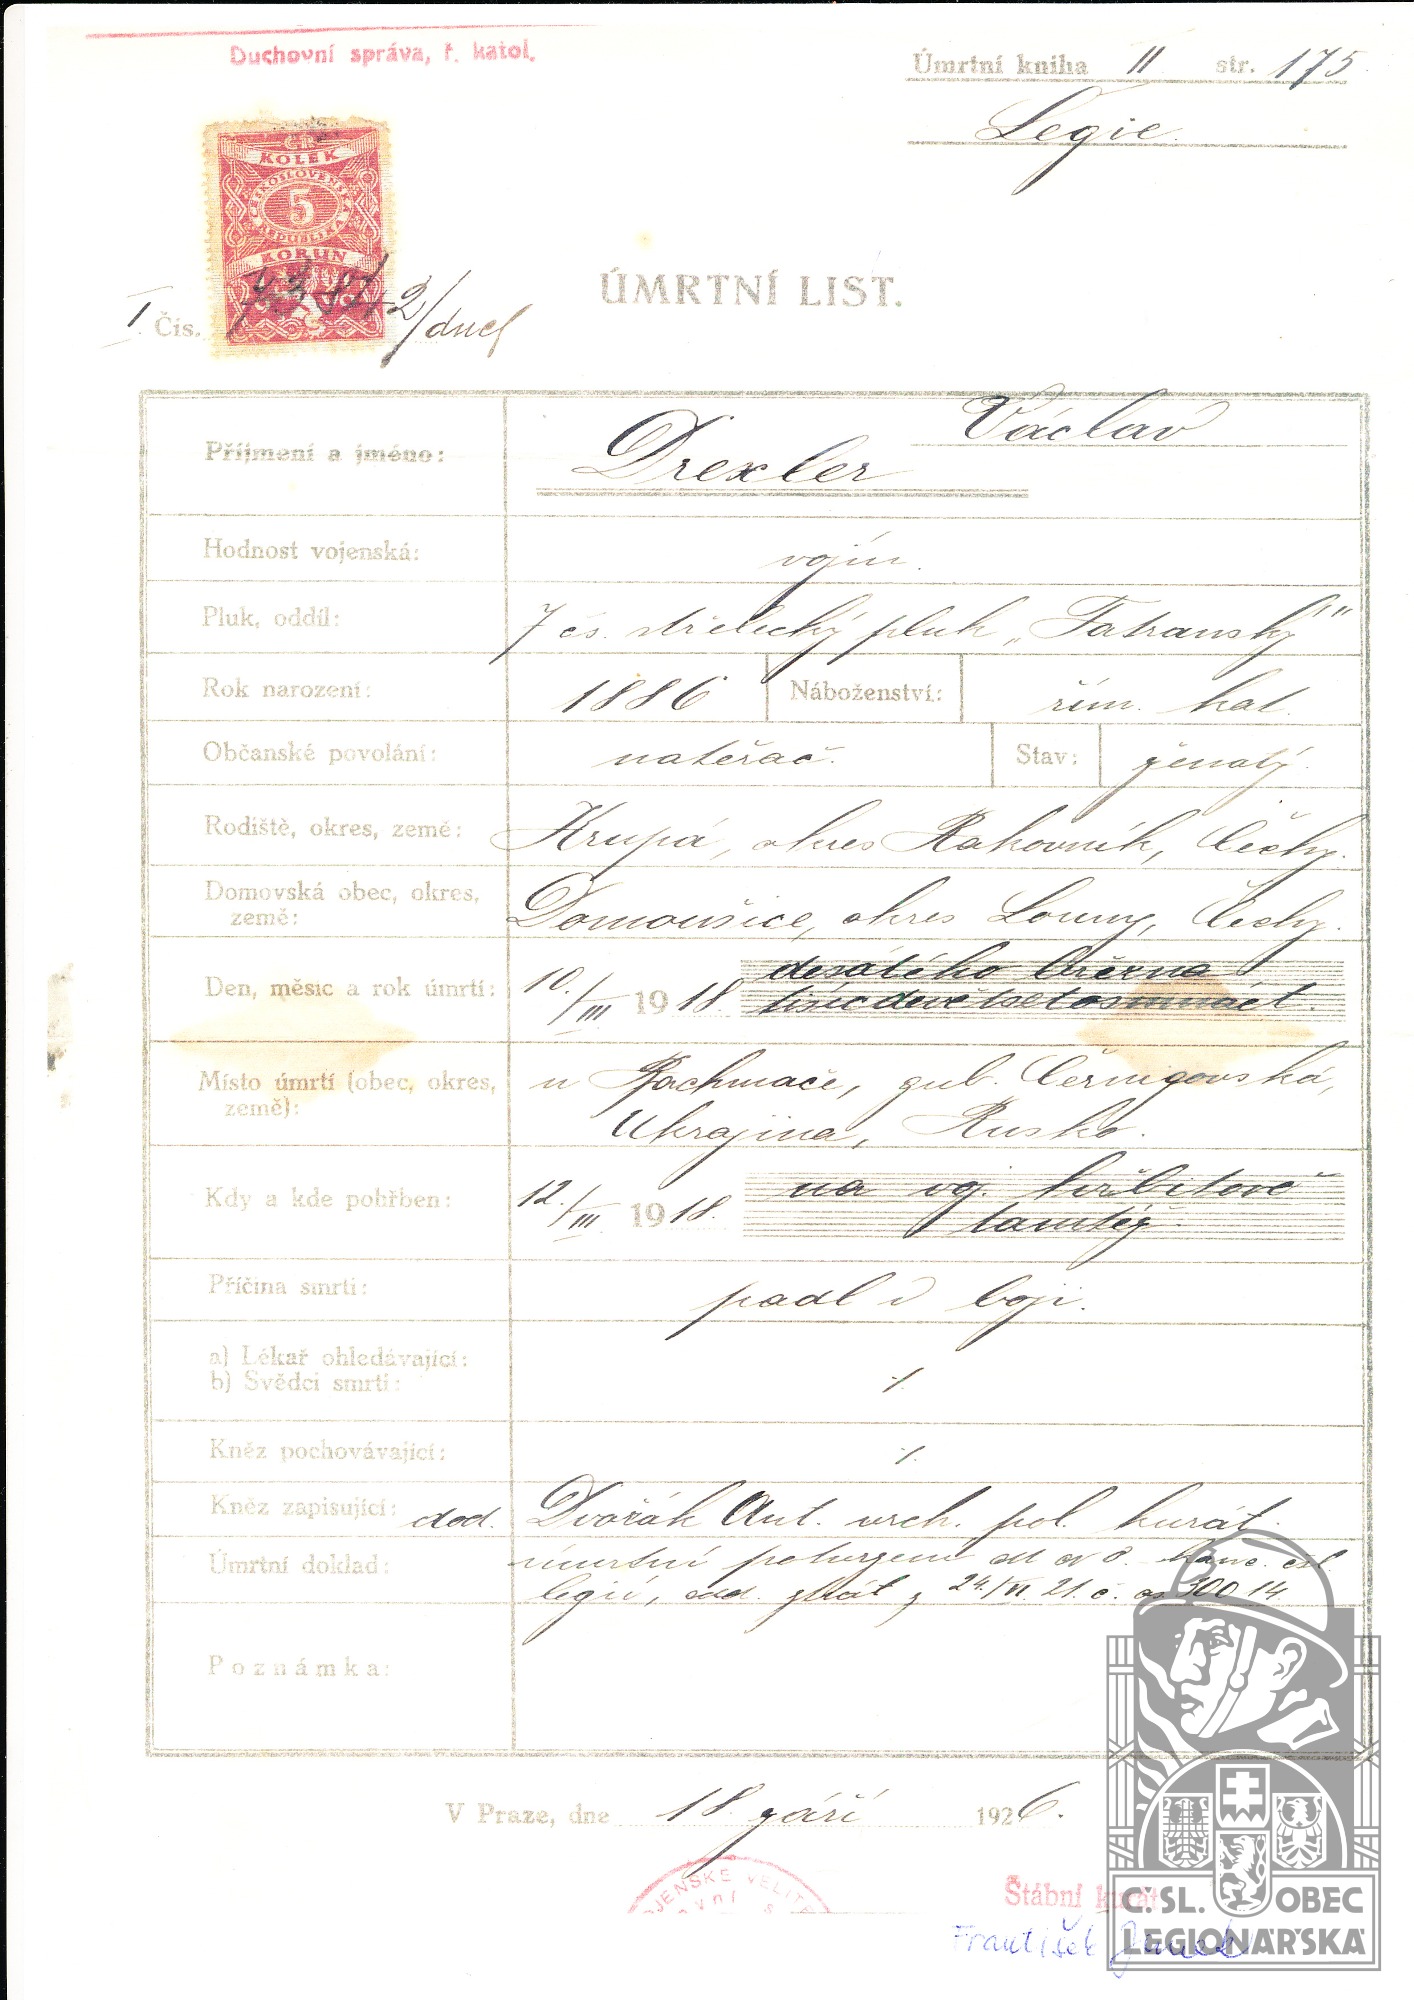 Duchovní správa, ř. katol.
Úmrtní kniha II str. 175
Legie.
ČR
KOLEK
ČESKOSLOVENSKÁ
5
REPUBLIKA
KORUN
ÚMRTNÍ LIST.
I Čís. 2/duch
Příjmení a jméno: Drexler Václav
Hodnost vojenská: vojín.
Pluk, oddíl: 7 čs. střelecký pluk „Tatranský"
Rok narození: 1886 Náboženství: řím. kat.
Občanské povolání: natěrač. Stav: ženatý.
Rodiště, okres, země: Krupá, okres Rakovník, Čechy.
Domovská obec, okres, země: Domoušice, okres Louny, Čechy.
Den, měsíc a rok úmrtí: 10./III 1918. desátého března
tisícdevětsetosmnáct.
Místo úmrtí (obec, okres, země): u Bachmače, gub. Černigovská,
Ukrajina, Rusko.
Kdy a kde pohřben: 12./III 1918. na voj. hřbitově
tamtéž.
Příčina smrti: padl v boji.
a) Lékař ohledávající:
b) Svědci smrti: ./.
Kněz pochovávající: ./.
Kněz zapisující: dod. Dvořák Ant. vrch. pol. kurát.
Úmrtní doklad: úmrtní potvrzení kanc. čsl.
legií, odd. ztrát z 24./VI 21. č. 300 14.
Poznámka:
V Praze, dne 18. září 1926.
OJENSKÉ VELITE
Štábní kurát
František
Č. SL. OBEC
LEGIONÁŘSKÁ